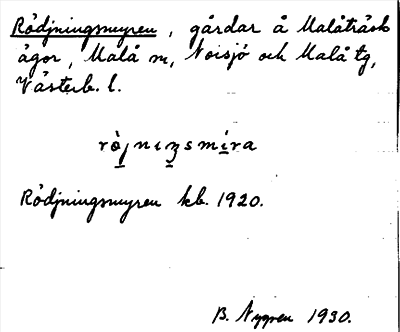 Rödjningsmyren, gårdar å Malåträsk
ägor, Malå sn, Norsjö och Malå tg,
Västerb. l.
ròjnıŋsmíra
Rödjningsmyren kb. 1920.
B. Nygren 1930.